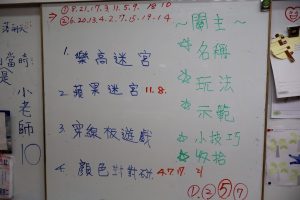 ① 8.21.17.3.11.5.9.18 10
② 6.20.13.4.2.7.15.19.14
~關主~
☆名稱
☆玩法
☆示範
☆小技巧
☆收拾
1. 樂高迷宮
2. 蘋果迷宮 11.8.
3. 穿線板遊戲
4. 顏色對對碰 4.7.17.
①②⑤⑦
當
時
是
小
老
師
10